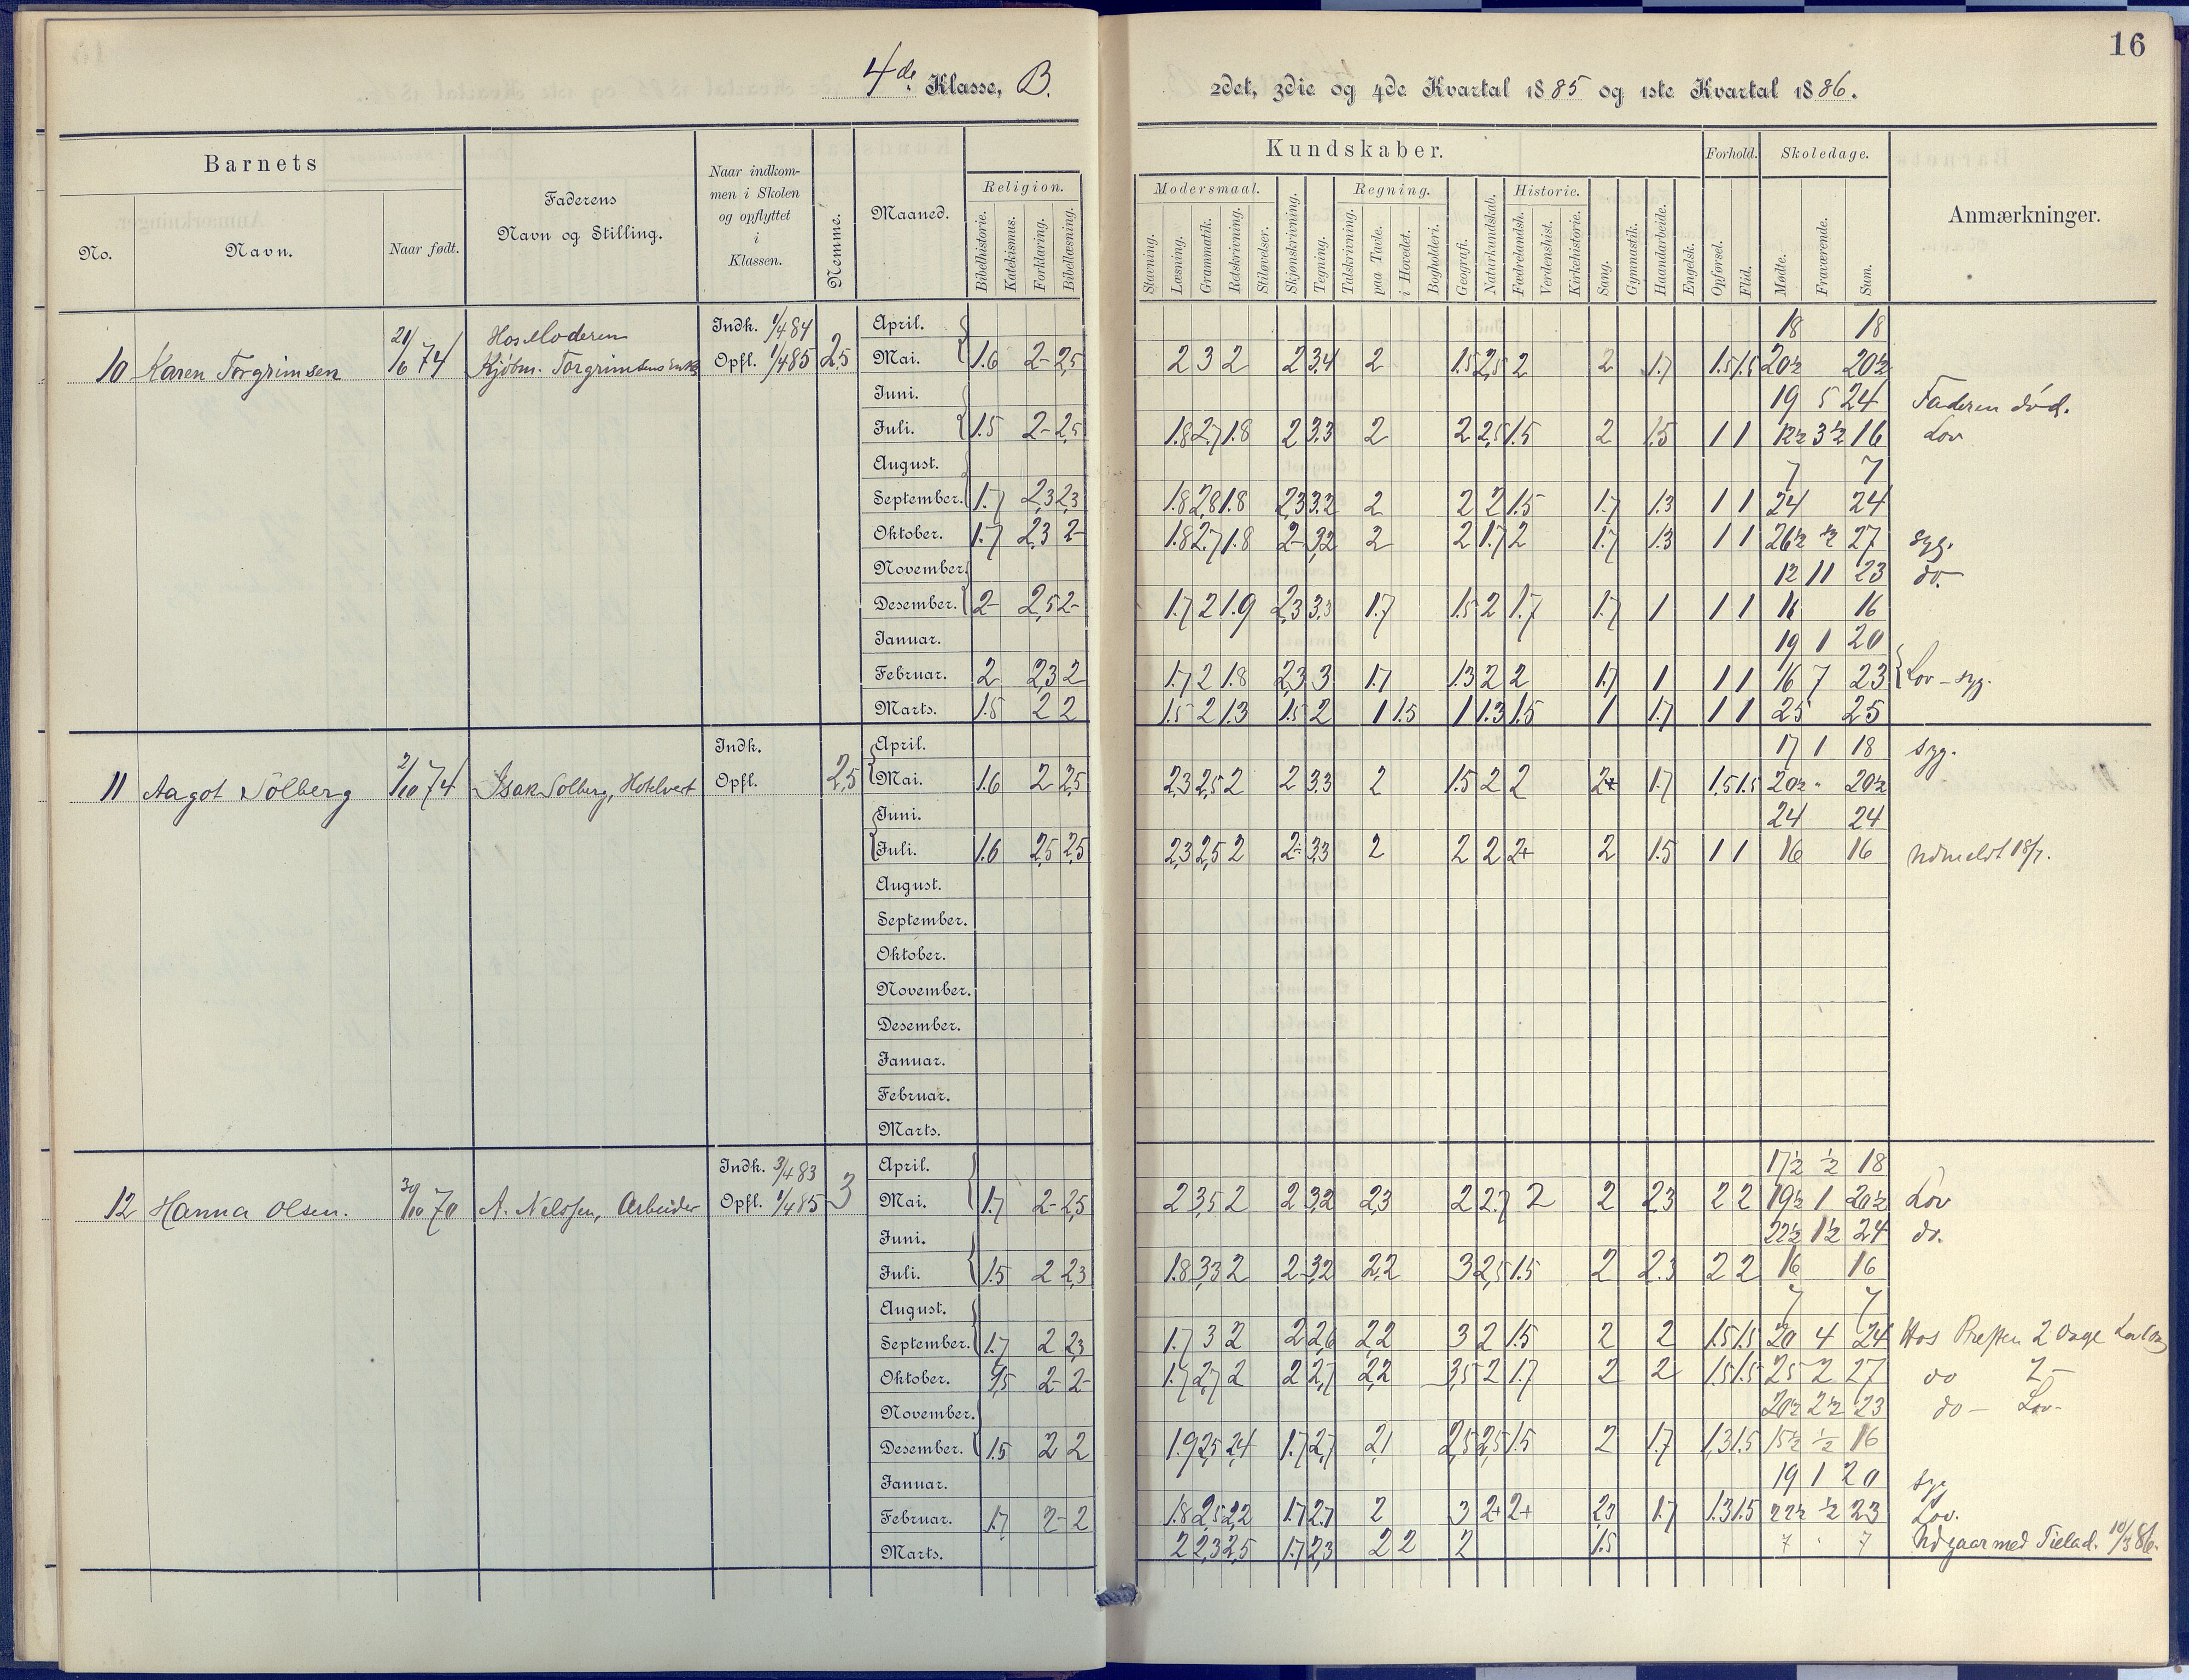 16
4de Klasse, B.
2det, 3die og 4de Kvartal 1885 og 1ste Kvartal 1886.
Barnets
No.
Navn.
Naar født.
Faderens
Navn og Stilling.
Naar indkom-
men i Skolen
og opflyttet
i
Klassen.
Nemme.
Maaned.
Religion.
Bibelhistorie.
Katekismus.
Forklaring.
Bibellæsning.
Kundskaber.
Modersmaal.
Stavning.
Læsning.
Grammatik.
Retskrivning.
Stiløvelser.
Skjønskrivning.
Tegning.
Regning.
Talskrivning.
paa Tavle.
i Hovedet.
Bogholderi.
Geografi.
Naturkundskab.
Historie.
Fædrelandsh.
Verdenshist.
Kirkehistorie.
Sang.
Gymnastik.
Haandarbeide.
Engelsk.
Forhold.
Opførsel.
Flid.
Skoledage.
Mødte.
Fraværende.
Sum.
Anmærkninger.
10 Karen Torgrimsen 21/6 74 Hos Moderen
Kjøbm. Torgrimsens Enke
Indk. 1/4 84
Opfl. 1/4 85 2,5
April. 18 18
Mai. 1.6 2- 2,5 2 3 2 2 3,4 2 1.5 2,5 2 2 1.7 1.5 1.5 20½ 20½
Juni. 19 5 24 Faderen død.
Juli. 1.5 2- 2,5 1.8 2.7 1.8 2 3,3 2 2 2,5 1.5 2 1.5 1 1 12½ 3½ 16 Lov
August. 7 7
September. 1.7 2,3 2,3 1.8 2,8 1.8 2,3 3.2 2 2 2 1.5 1.7 1.3 1 1 24 24
Oktober. 1.7 2,3 2- 1.8 2.7 1.8 2- 3,2 2 2 1.7 2 1.7 1.3 1 1 26½ ½ 27 syg.
November. 12 11 23 do.
Desember. 2- 2,5 2- 1.7 2 1.9 2,3 3,3 1.7 1.5 2 1.7 1.7 1 1 1 16 16
Januar. 19 1 20
Februar. 2 2,3 2 1.7 2 1.8 2,3 3 1.7 1.3 2 2 1.7 1 1 1 16 7 23 Lov - syg.
Marts. 1.5 2 2 1.5 2 1.3 1.5 2 1 1.5 1 1.3 1.5 1 1.7 1 1 25 25
11 Aagot Solberg 2/10 74 Isak Solberg, Hotelvert
Indk.
Opfl. 2,5
April. 17 1 18 syg.
Mai. 1.6 2 2,5 2,3 2,5 2 2 3,3 2 1.5 2 2 2+ 1.7 1.5 1.5 20½ " 20½
Juni. 24 24
Juli. 1.6 2,5 2,5 2,3 2,5 2 2- 3,3 2 2 2 2+ 2 1.5 1 1 16 16 Udmeldt 18/7.
August.
September.
Oktober.
November.
Desember.
Januar.
Februar.
Marts.
12 Hanna Olsen. 30/10 70 A. Nilssen, Arbeider
Indk. 3/4 83
Opfl. 1/4 85 3
April. 17½ ½ 18
Mai. 1.7 2- 2,5 2 3,5 2 2 3,2 2,3 2 2.7 2 2 2,3 2 2 19½ 1 20½ Lov
Juni. 22½ 1½ 24 do.
Juli. 1.5 2 2,3 1.8 3,3 2 2- 3,2 2,2 3 2,5 1.5 2 2.3 2 2 16 16
August. 7 7
September. 1.7 2 2,3 1.7 3 2 2 2,6 2,2 3 2 1.5 2 2 1.5 1.5 20 4 24 Hos Presten 2 Dage
Oktober. 1,5 2- 2- 1.7 2,7 2 2 2,7 2,2 3,5 2 1.7 2 2 1.5 1.5 25 2 27 do 2-
November. 20½ 2½ 23 do - Lov-
Desember. 1.5 2 2 1.9 2,5 2,4 1.7 2,7 2,1 2,5 2,5 1.5 2 1.7 1,3 1.5 15½ ½ 16
Januar. 19 1 20 syg
Februar. 1.7 2- 2 1.8 2,5 2,2 1.7 2.7 2 3 2+ 2+ 2,3 1.7 1.3 1.5 22½ ½ 23 Lov.
Marts. 2 2,3 2,5 1.7 2,3 2 2 2 1.5 7 7 Udgaar med Tillad. 10/3 86.